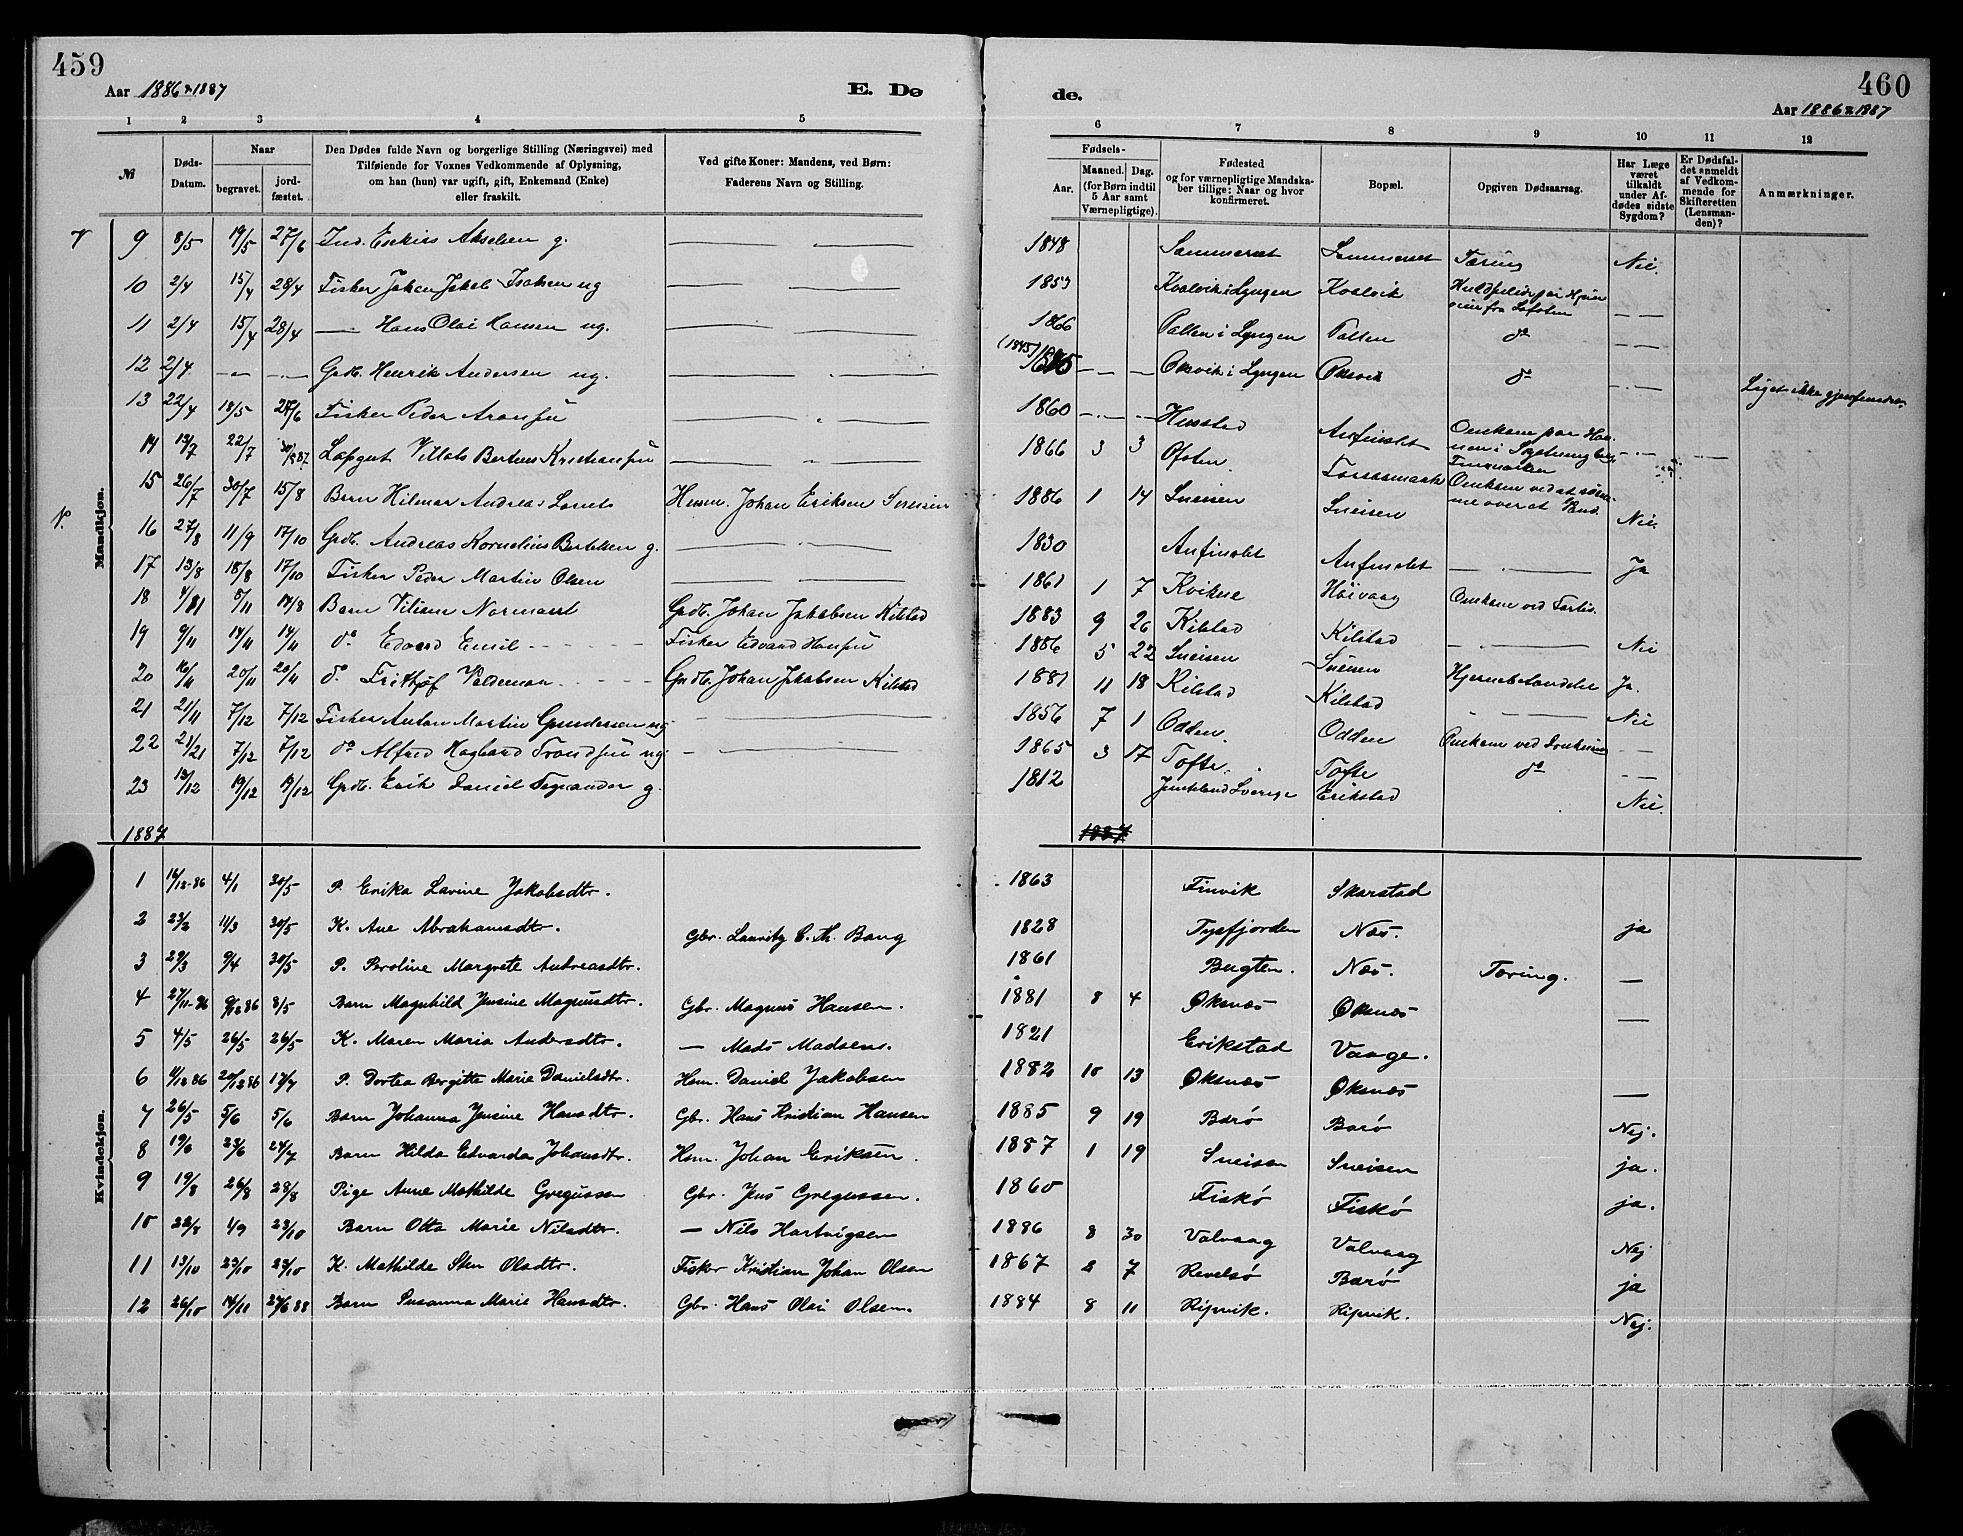 459
Aar 1886 & 1887
E. Dø
de.
460
Aar 1886 & 1887
1 2 3 4 5 6 7 8 9 10 11 12
№
Døds-Datum.
Naar
begravet.
jord-fæstet.
Den Dødes fulde Navn og borgerlige Stilling (Næringsvei) med
Tilføiende for Voxnes Vedkommende af Oplysning,
om han (hun) var ugift, gift, Enkemand (Enke)
eller fraskilt.
Ved gifte Koner: Mandens, ved Børn:
Faderens Navn og Stilling.
Fødsels-
Aar.
Maaned. Dag.
(for Børn indtil
5 Aar samt
Værnepligtige).
Fødested
og for værnepligtige Mandska-
ber tillige: Naar og hvor
konfirmeret.
Bopæl.
Opgiven Dødsaarsag.
Har Læge
været
tilkaldt
under Af-
dødes sidste
Sygdom?
Er Dødsfal-
det anmeldt
af Vedkom-
mende for
Skifteretten
(Lensman-
den)?
Anmærkninger.
Mandkjøn.
9 8/5 19/5 27/6 Ind. Esekias Akselsen g. 1848 Sommerset Sommerset Tæring Nei.
10 2/4 15/4 28/4 Fisker Johan Jakob Isaksen ug 1853 Kvalvik i Lyngen Kvalvik fra Lofoten — —
11 2/4 15/4 28/4 — Hans Olai Hansen ug. 1866 Pollen i Lyngen Pollen do — —
12 2/4 — — Grdb. Henrik Andersen ug. (1845) 1845 — — Oksvik i Lyngen Oksvik do — Liget ikke gjenfundet
13 22/4 18/5 27/6 Fisker Peder Aronsen 1860 — — Husstad Anfinslet Omkom paa
14 13/7 22/7 Lapgut Berteus Kristiansen 1866 3 3 Ofoten Omkom ved at
15 26/7 30/7 15/8 Barn Hilmar Andreas Husm. Johan Eriksen Sneisen 1886 1 14 Sneisen Sneisen Nei
16 27/8 11/9 17/10 Grdb. Andreas Kornelius Bertelsen g. 1830 Anfinslet Anfinslet Ja
17 13/8 18/8 17/10 Fisker Peder Martin Olsen 1861 1 7 Høivaag Omkom ved Forlis.
18 Barn Viliam Normann Grdb. Johan Jakobsen Kilstad 1883 9 26 Kilstad Kilstad Nei
19 9/11 14/11 14/11 do Edvard Emil Fisker Edvard Hansen 1886 5 22 Sneisen Sneisen Hjernebetændelse Ja.
20 16/11 20/11 20/11 do Frithjof Valdemar Grdb. Johan Jakobsen Kilstad 1881 11 18 Kilstad Kilstad Nei
21 21/11 7/12 7/12 Fisker Anton Martin Gundersen ug 1856 7 1 Odden. Odden Omkom ved Drukning — —
22 7/12 7/12 do Alfred Hagbard Trondsen ug 1865 3 17 Tofte. Tofte do — —
23 13/12 19/12 19/12 Grdb. Erik Daniel Fagrander g. 1812 Jemtland Sverige Erikstad Nei.
1887
1887
Kvindekjøn.
1 16/12-86 4/1 30/5 P. Erika Lavine Jakobsdtr. 1863 Finvik Skarstad
2 23/2 11/3 30/5 K. Ane Abrahamsdtr. Gbr. Lauritz C. Th. Bang 1828 Tysfjorden Næs. ja
3 29/3 9/4 30/5 P. Peroline Margrete Andreasdtr. 1861 Bugten. Næs. Tæring. —
4 27/11-86 9/12 86 8/5 Barn Magnhild Jensine Magnusdtr. Gbr. Magnus Hansen. 1881 8 4 Øksnæs Øksnæs —
5 4/5 26/5 26/5 K. Maren Maria Andersdtr. — Mads Madsens. 1821 Erikstad Vaage.
6 4/12 86 20/12 86 17/7 P. Dortea Birgitte Marie Danielsdtr. Hsm. Daniel Jakobsen 1882 10 13 Øksnæs Øksnæs —
7 26/5 5/6 5/6 Barn Johanna Jensine Hansdtr. Gbr. Hans Kristian Hansen 1885 9 19 Barø Barø Nej.
8 19/6 23/6 24/7 Barn Hilda Edvarda Johansdtr. Hsm. Johan Eriksen. 1887 1 19 Sneisen Sneisen ja.
9 19/8 26/8 28/8 Pige Anne Mathilde Gregussen Gbr. Jens Gregussen. 1860 Fiskø Fiskø ja.
10 22/8 4/9 23/10 Barn Otta Marie Nilsdtr. — Nils Hartvigsen 1886 8 30 Valvaag Valvaag Nej
11 13/10 23/10 23/10 K. Mathilde Sten Olsdtr. Fisker Kristian Johan Olsen 1867 2 7 Revelsø Barø ja
12 26/10 14/11 27/6 88 Barn Susanna Marie Hansdtr. Gbr. Hans Olai Olsen. 1884 8 11 Ripvik. Ripvik. Nej.